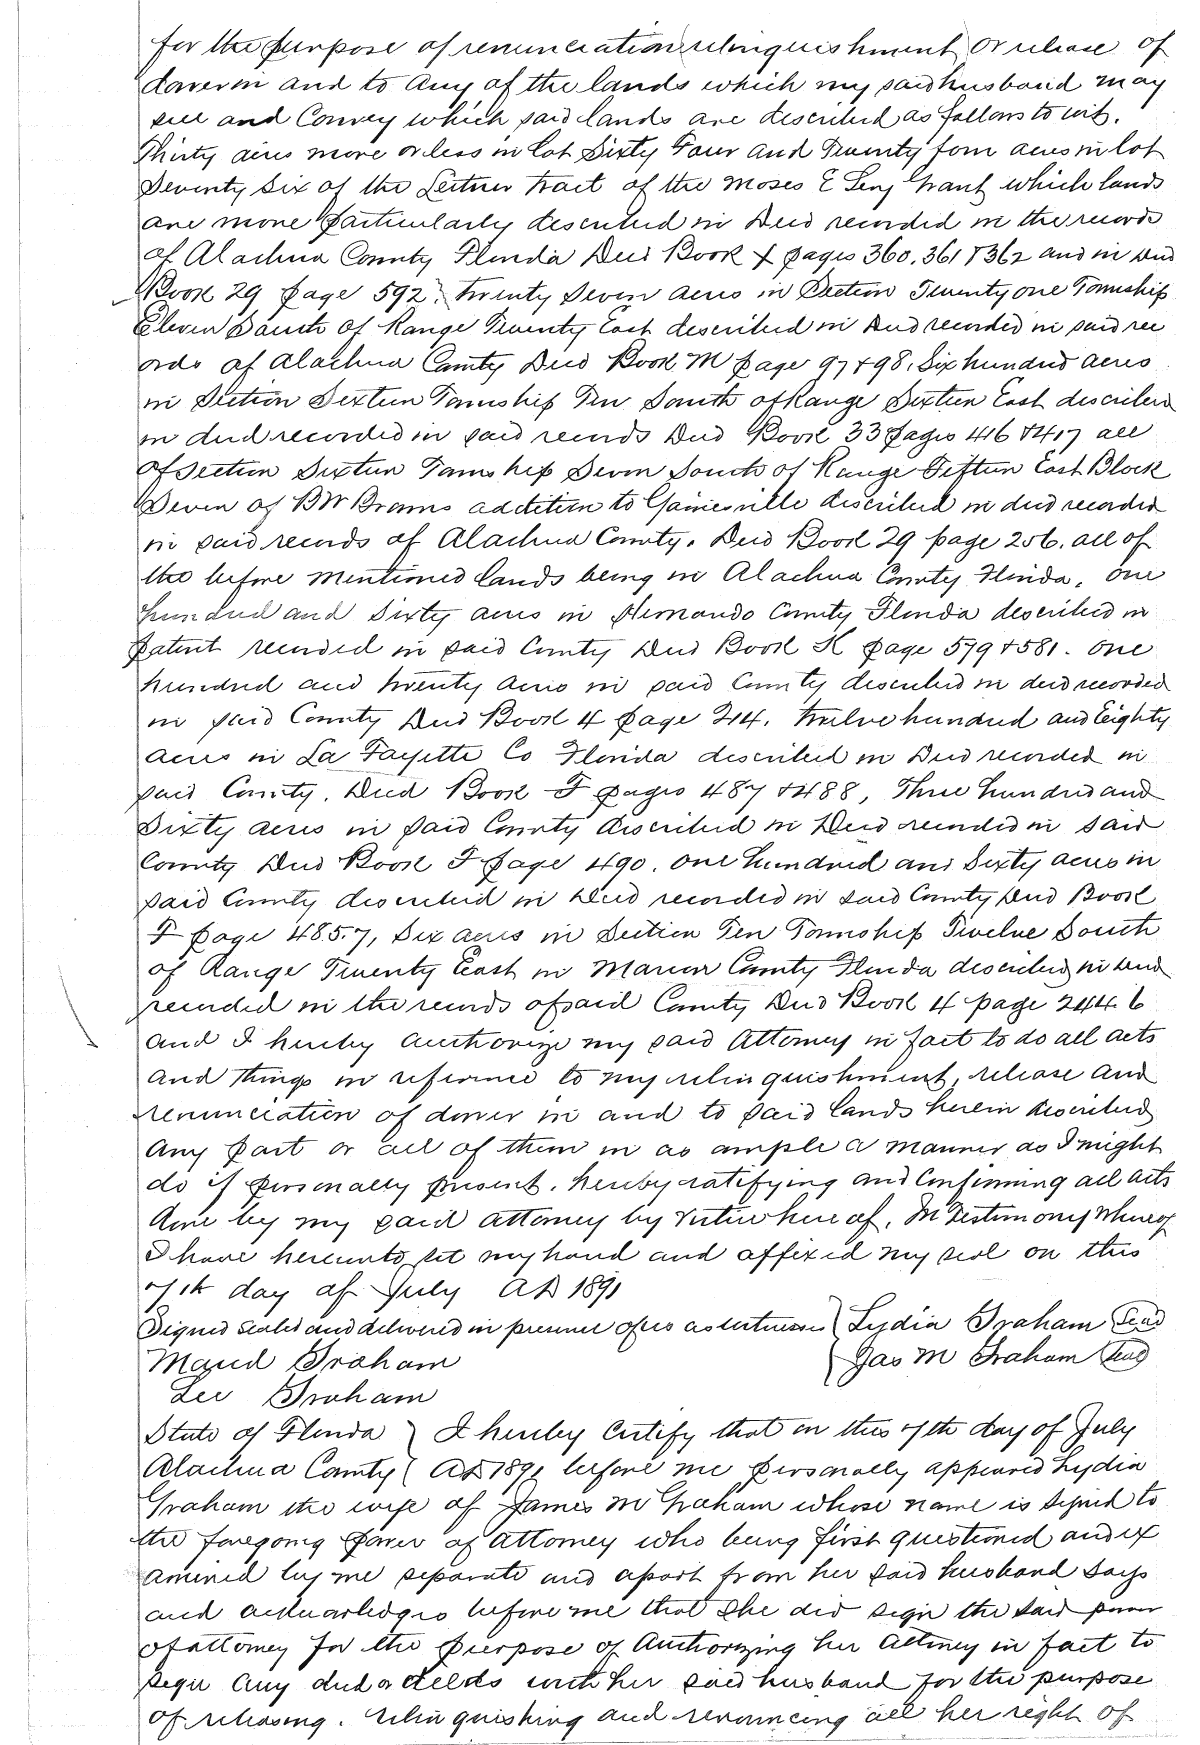 for the purpose of renunciation relinquishment or release of
dower in and to any of the lands which my said husband may
sell and convey which said lands are described as follows to wit.
Thirty acres more or less in lot Sixty Four and Twenty four acres in lot
Seventy Six of the Leitner tract of the Moses E Levy Grant which lands
are more particularly described in Deed recorded in the records
of Alachua County Florida Deed Book X pages 360, 361 & 362 and in Deed
Book 29 page 592, twenty Seven acres in Section Twenty one Township
Eleven South of Range Twenty East described in Deed recorded in said rec
ords of Alachua County Deed Book M page 97 & 98, Six hundred acres
in Section Sixteen Township Ten South of Range Sixteen East described
in deed recorded in said records Deed Book 33 pages 416 & 417 all
of Section Sixteen Township Seven South of Range Fifteen East Block
Seven of BW Browns addition to Gainesville described in deed recorded
in said records of Alachua County. Deed Book 29 page 256. all of
the before mentioned lands being in Alachua County Florida, One
hundred and Sixty acres in Hernando County Florida described in
patent recorded in said County Deed Book K page 579 & 581. One
hundred and twenty acres in said County described in deed recorded
in said County Deed Book 4 page 244. twelve hundred and Eighty
acres in La Fayette Co Florida described in Deed recorded in
said County, Deed Book F pages 487 & 488, Three hundred and
Sixty acres in said County described in Deed recorded in said
County Deed Book F page 490. One hundred and Sixty acres in
said County described in Deed recorded in said County Deed Book
F page 485.7, Six acres in Section Ten Township Twelve South
of Range Twenty East in Marion County Florida described in Deed
recorded in the records of said County Deed Book 4 page 244 6
and I hereby authorize my said Attorney in fact to do all acts
and things in reference to my relinquishment, release and
renunciation of dower in and to said lands herein described
any part or all of them in as ample a manner as I might
do if personally present. hereby ratifying and confirming all acts
done by my said attorney by virtue hereof, In Testimony Whereof
I have hereunto set my hand and affixed my seal on this
7th day of July AD 1891
Signed sealed and delivered in presence of us as witnesses } Lydia Graham Seal
Maud Graham } Jas M Graham Seal
Lee Graham
State of Florida } I hereby certify that on this 7th day of July
Alachua County { AD 1891 before me personally appeared Lydia
Graham the wife of James M Graham whose name is signed to
the foregoing power of attorney who being first questioned and ex
amined by me separate and apart from her said husband says
and acknowledges before me that she did sign the said power
of attorney for the purpose of Authorizing her Attorney in fact to
sign any deed or deeds with her said husband for the purpose
of releasing. relinquishing and renouncing all her right of